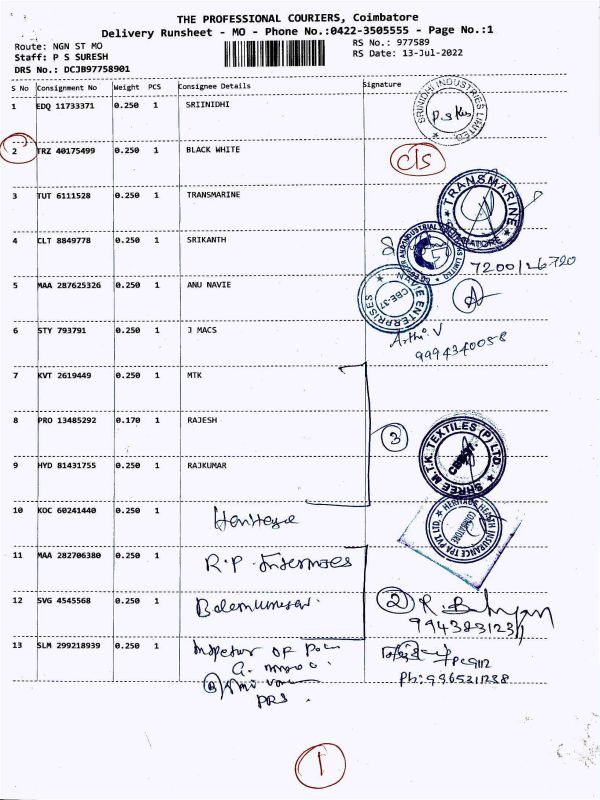 THE PROFESSIONAL COURIERS, Coimbatore
Delivery Runsheet - MO - Phone No.:0422-3505555 - Page No.:1
Route: NGN ST MO
RS No.: 977589
Staff: P S SURESH
RS Date: 13-Jul-2022
DRS No.: DCJB97758901
S No Consignment No Weight PCS Consignee Details Signature
1 EDQ 11733371 0.250 1 SRIINIDHI
SRINIDHI INDUSTRIES LIMITED
2 TRZ 40175499 0.250 1 BLACK WHITE
C/s
3 TUT 6111528 0.250 1 TRANSMARINE
TRANSMARINE
COIMBATORE
4 CLT 8849778 0.250 1 SRIKANTH
7200126720
5 MAA 287625326 0.250 1 ANU NAVIE
ENTERPRISES
CBE-37
6 STY 793791 0.250 1 J MACS
Arthi V
9994340058
7 KVT 2619449 0.250 1 MTK
8 PRO 13485292 0.170 1 RAJESH
3
SHREE M.T.K. TEXTILES (P) LTD.
9 HYD 81431755 0.250 1 RAJKUMAR
10 KOC 60241440 0.250 1 Heritage
HERITAGE HEALTH INSURANCE TPA PVT. LTD.
11 MAA 282706380 0.250 1 R.P.
12 SVG 4545568 0.250 1
2 R.
13 SLM 299218939 0.250 1 Inspector OF
PC 9112
Ph: 9965311238
PRS
1